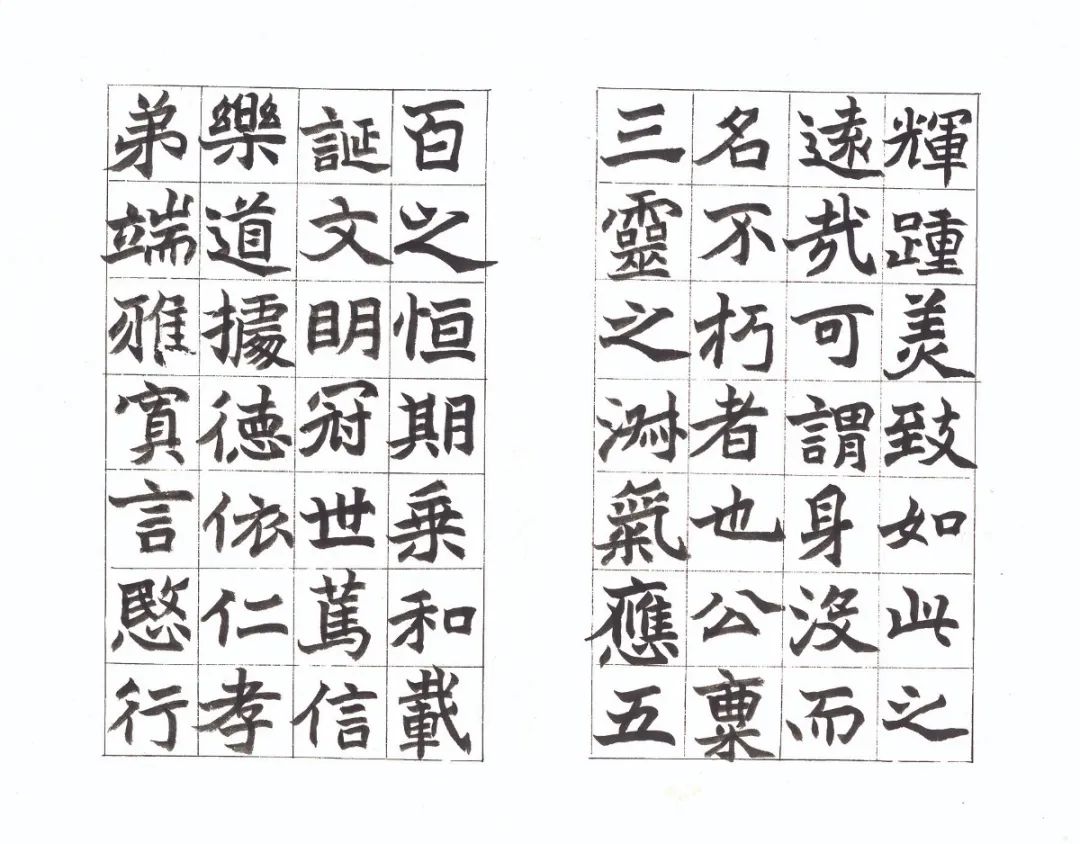 輝踵美致如此之
遠哉可謂身沒而
名不朽者也公稟
三靈之淑氣應五
百之恒期乘和載
誕文明冠世篤信
樂道據德依仁孝
弟端雅寡言慜行